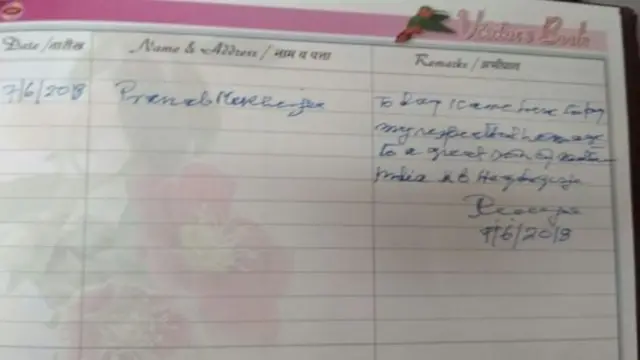 Visitors Book
Date / तारीख Name & Address / नाम व पत्ता Remarks / अभीप्राय
7/6/2018 Pranab Mukherjee To day I came here to pay
my respect and homage
to a great son of Mother
India Dr K B Hedgewar
Pranab
7/6/2018